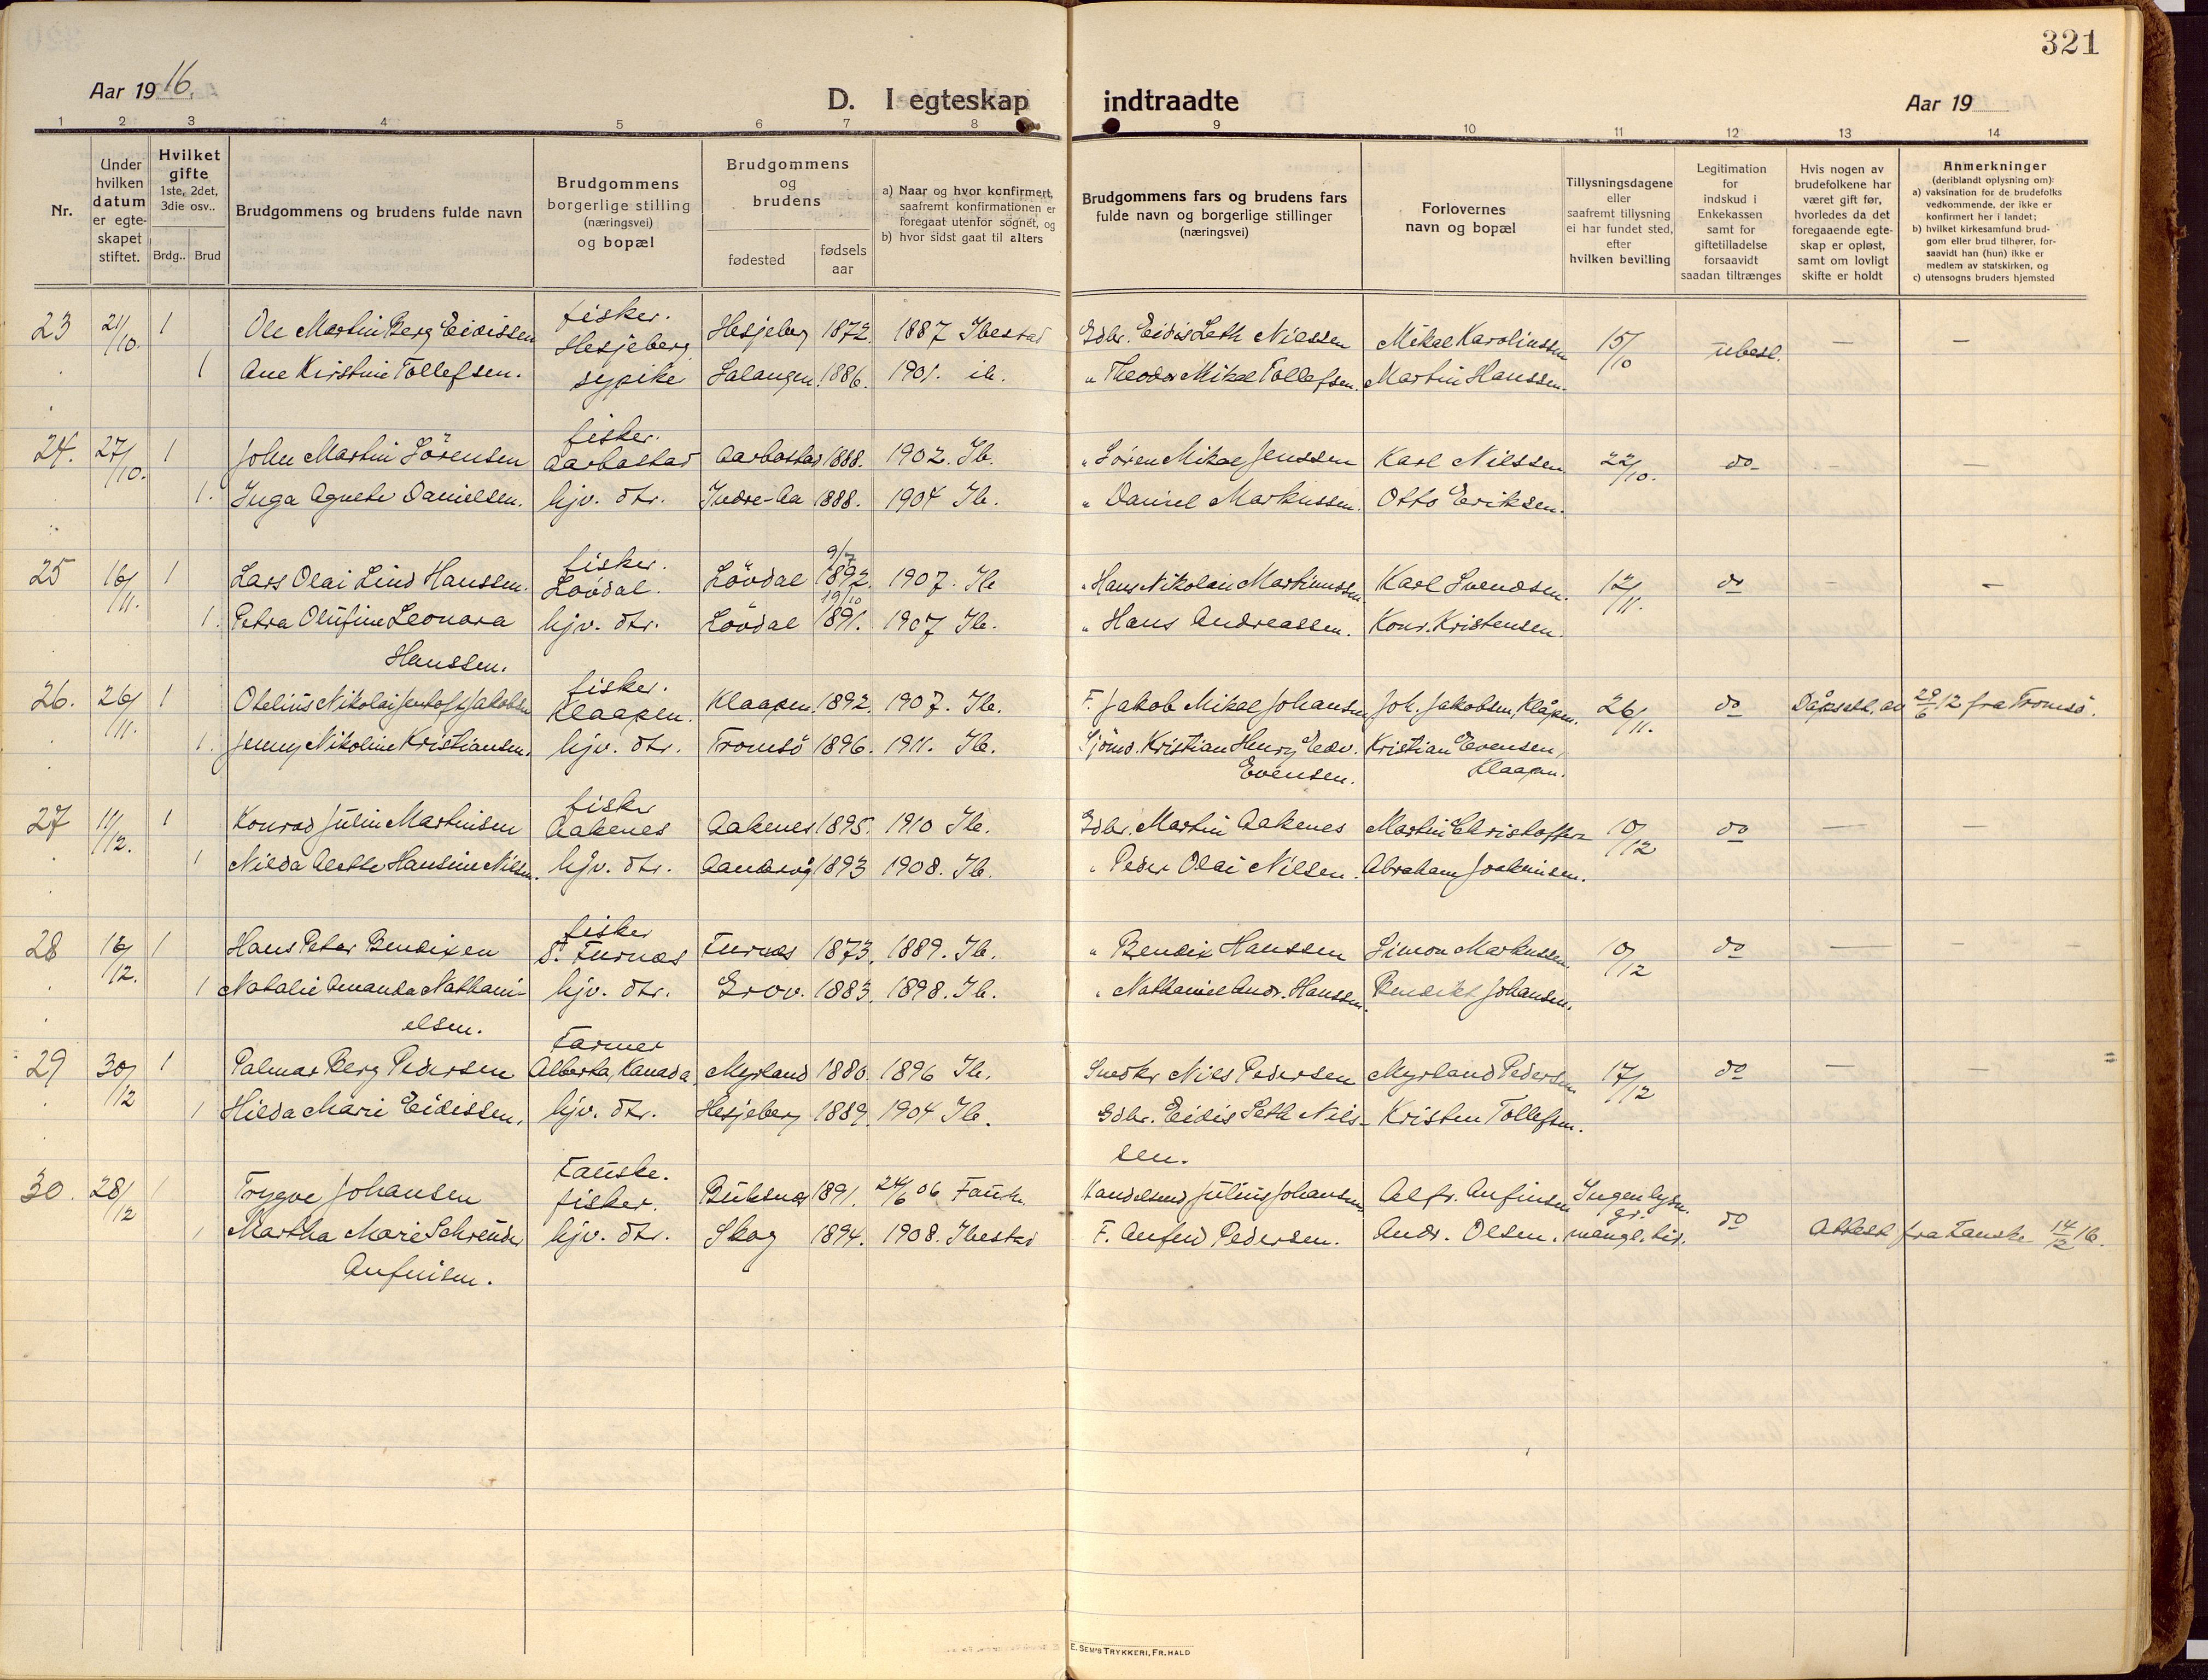 321
Aar 19 16.
D. I egteskap indtraadte
Aar 19
1 2 3 4 5 6 7 8 9 10 11 12 13 14
Nr.
Under hvilken datum er egteskapet stiftet.
Hvilket gifte 1ste, 2det, 3die osv..
Brdg.. Brud
Brudgommens og brudens fulde navn
Brudgommens borgerlige stilling (næringsvei) og bopæl
Brudgommens og brudens
fødested
fødsels aar
a) Naar og hvor konfirmert, saafremt konfirmationen er foregaat utenfor sognet, og
b) hvor sidst gaat til alters
Brudgommens fars og brudens fars fulde navn og borgerlige stillinger (næringsvei)
Forlovernes navn og bopæl
Tillysningsdagene eller saafremt tillysning ei har fundet sted, efter hvilken bevilling
Legitimation for indskud i Enkekassen samt for giftetilladelse forsaavidt saadan tiltrænges
Hvis nogen av brudefolkene har været gift før, hvorledes da det foregaaende egteskap er opløst, samt om lovligt skifte er holdt
Anmerkninger
(deriblandt oplysning om):
a) vaksination for de brudefolks vedkommende, der ikke er konfirmert her i landet;
b) hvilket kirkesamfund brudgom eller brud tilhører, forsaavidt han (hun) ikke er medlem av statskirken, og
c) utensogns bruders hjemsted
fisker.
23 21/10. 1 Ole Martin Berg Eidissen Hesjeberg Hesjeberg 1872. 1887 Ibestad Gdbr. Eidis Seth Nilssen Mikal Karolinssen 15/10 ubesl. — —
1 Ane Kirstine Tollefsen. sypike Salangen 1886. 1901. ib. " Theodor Mikal Tollefsen. Martin Hanssen.
fisker.
24. 27/10. 1 John Martin Sörensen Aarbostad Aarbostad 1888. 1902. Ib. " Sören Mikal Jenssen Karl Nilssen 22/10. do — —
1. Inga Agnete Danielsen. hjv. dtr. Indre-Aa 1888. 1904 Ib. " Daniel Markussen. Otto Eriksen.
fisker. 9/7
25 16/11. 1 Lars Olai Lind Hanssen. Lövdal. Lövdal 1892. 1907. Ib " Hans Nikolai Martinussen Karl Svendsen. 12/11. do — —
19/10
1. Petra Olufine Leonora hjv. dtr. Lövdal 1891. 1907 Ib. " Hans Andreassen. Konr. Kristensen.
Hanssen.
fisker.
26. 26/11. 1 Otelius Nikolai Jentoft Jakobsen Klaapen. Klaapen. 1892. 1907. Ib. F. Jakob Mikal Johansen Joh. Jakobsen, Klåpen. 26/11. do Dåpsatt. av 29/6 12 fra Tromsö.
1. Jenny Nikoline Kristiansen. hjv. dtr. Tromsö 1896. 1911. Ib. Sjömd. Kristian Henry Edv. Kristian Evensen,
Evensen. Klaapen.
fisker
27 11/12. 1 Konrad Julin Martinsen Aakenes Aakenes 1895. 1910 Ib. Gdbr. Martin Aakenes Martin Christoffer- 10/12 do — —
1 hjv. dtr. 1893 1908. Ib. " Peder Olai Nilsen. Abraham Joakimsen.
fisker
28 16/12. 1 Hans Peter Bendixen St. Furnæs Furnæs 1873. 1889. Ib. " Bendix Hanssen Simon Markussen. 10/12 do — —
1 Natalie Amanda Nathani- hjv. dtr. Grov. 1883. 1898. Ib. " Nathaniel Andr. Hanssen. Bendikt Johansen.
elsen.
Farmer
29 30/12 1 Palmar Berg Pedersen Alberta, Kanada Myrland 1880. 1896 Ib. Snedkr Nils Pedersen Myrland Pedersen 17/12 do — —
1 Hilda Marie Eidissen. hjv. dtr. Hesjeberg 1889. 1904 Ib. Gdbr. Eidis Seth Nils- Kristen Tollefsen.
sen.
Fauske.
30. 28/12 1 Trygve Johansen fisker. Buksnæs 1891. 24/6 06 Fauske. Handelsmd Julius Johansen Alfr. Anfinsen Ingen lysn.
gr. do
1 Martha Marie Schrøder hjv. dtr. Skog 1894. 1908. Ibestad F. Anfind Pedersen. Andr. Olsen. mangl. tid. Attest fra Fauske 14/12 16.
Anfinsen.
E. SEM'S TRYKKERI, FR.HALD